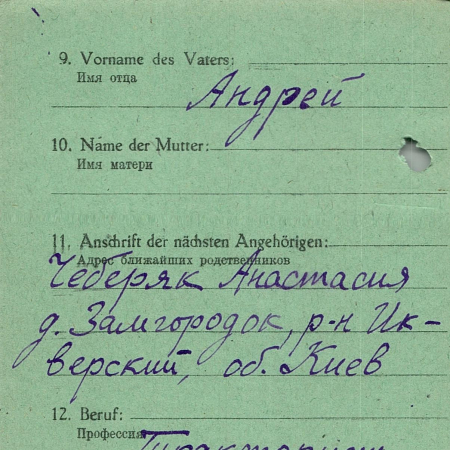 9. Vorname des Vaters:
Имя отца
Андрей
10. Name der Mutter:
Имя матери
11. Anschrift der nächsten Angehörigen:
Адрес ближайших родственников
Чеберяк Анастасия
д. Замгородок, р-н Ик-
верский, об. Киев
12. Beruf:
Профессия